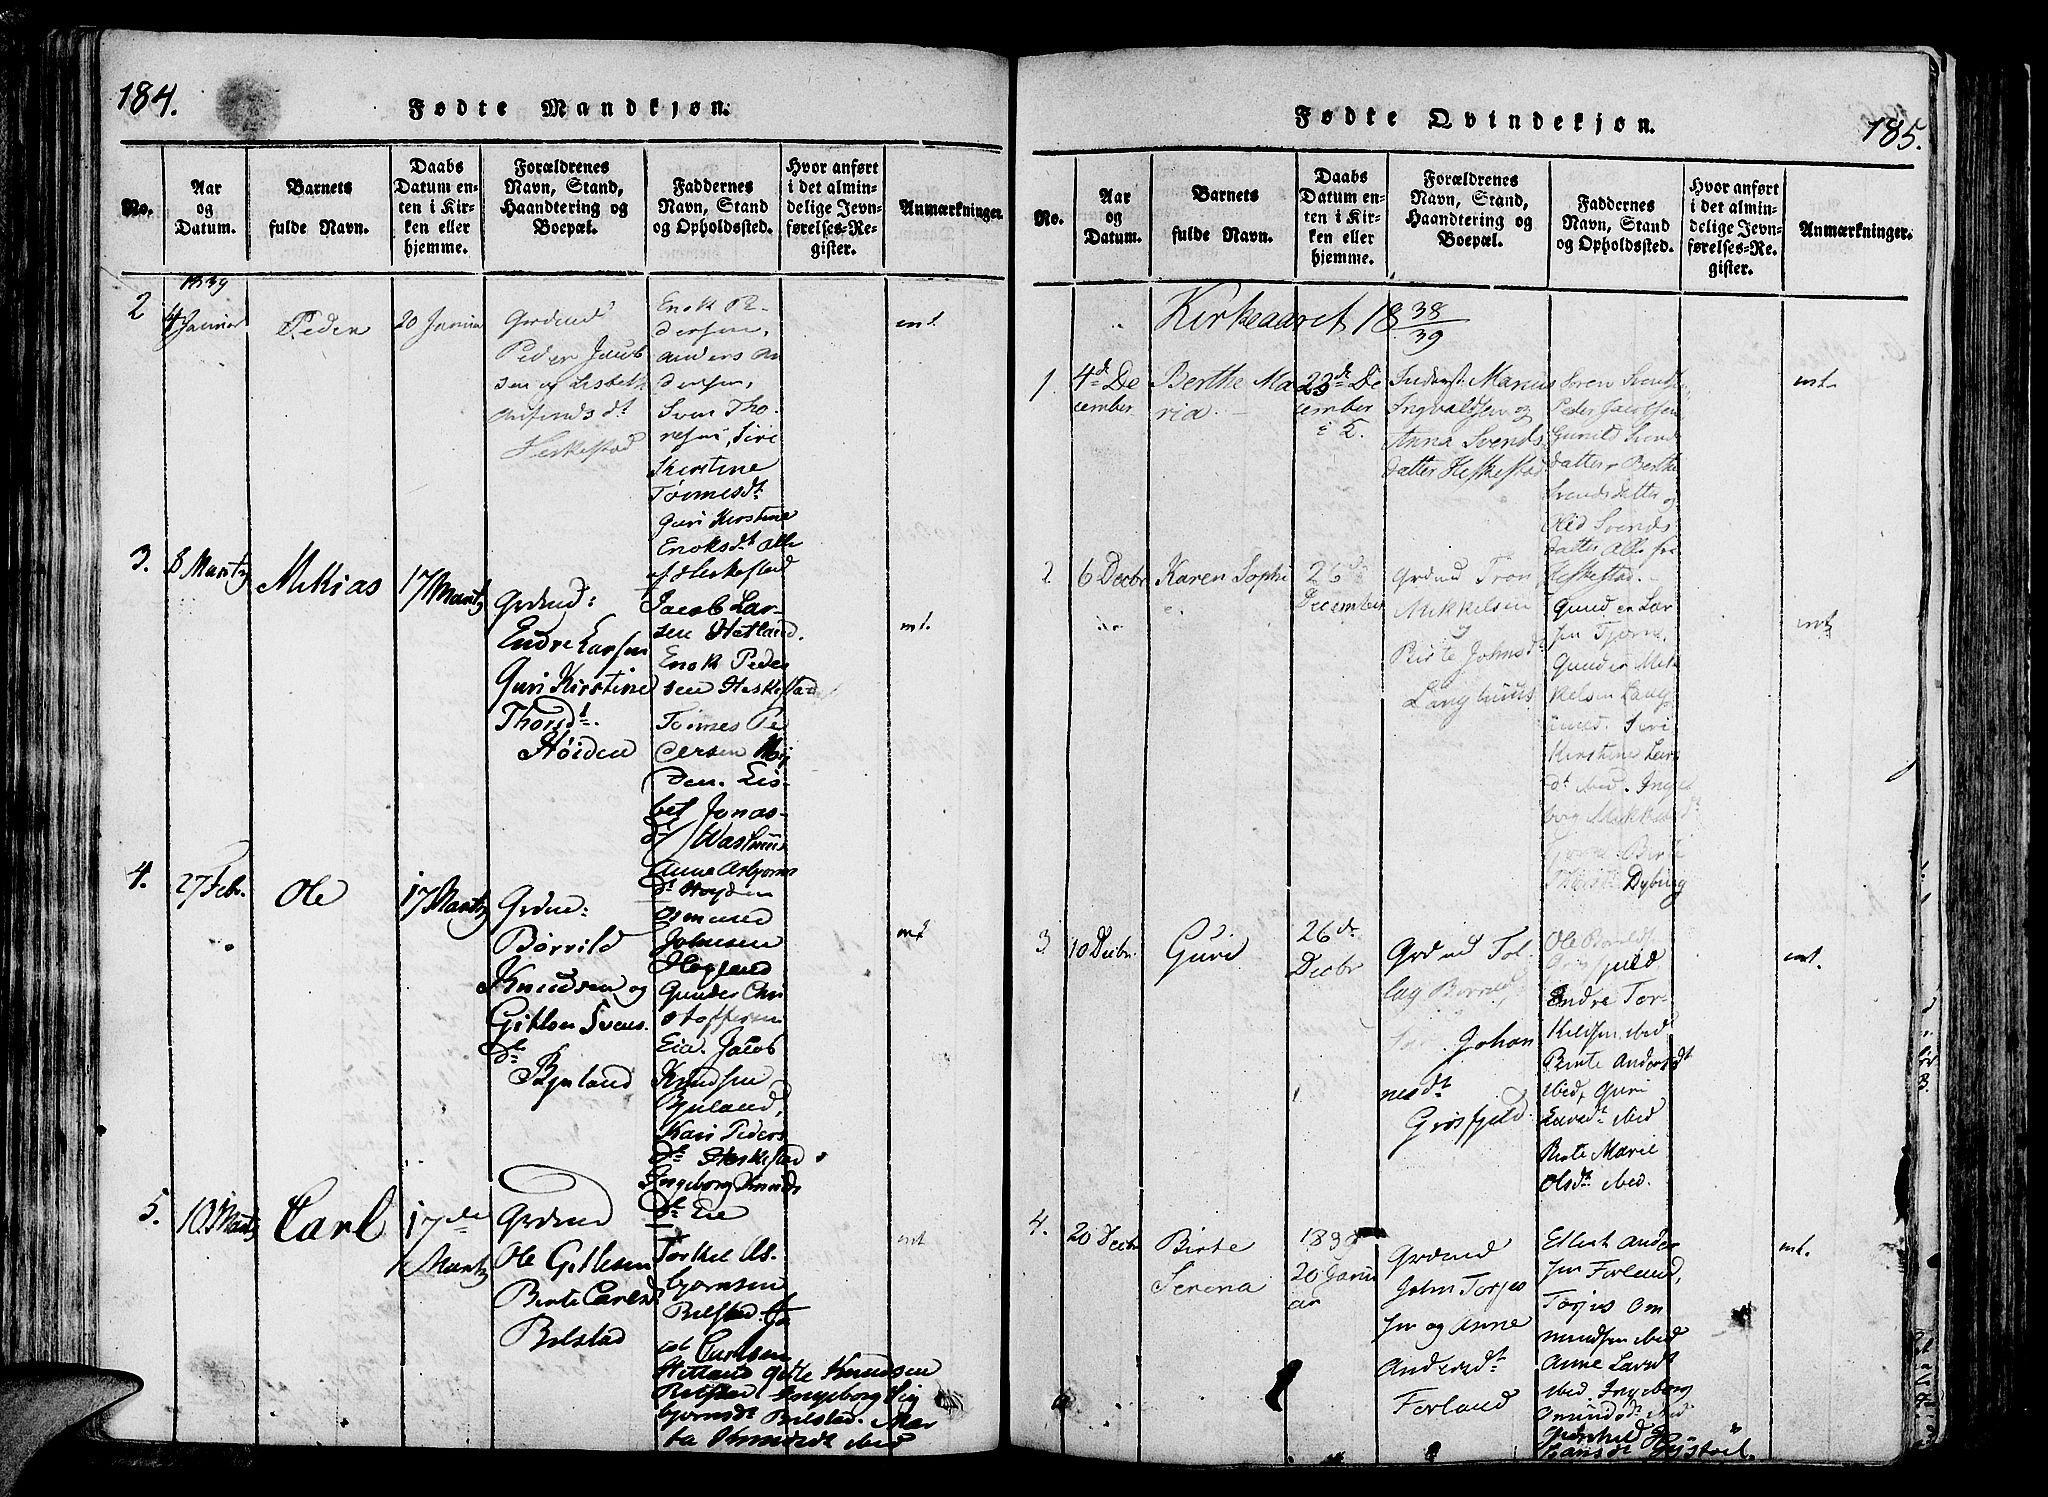 184.
Fødte Mandkjøn.
No.
Aar
og
Datum.
Barnets
fulde Navn.
Daabs
Datum en-
ten i Kir-
ken eller
hjemme.
Forældrenes
Navn, Stand,
Haandtering og
Boepæl.
Faddernes
Navn, Stand
og Opholdssted.
Hvor anført
i det almin-
delige Jevn-
førelses-Re-
gister.
Anmærkninger.
1839
2
4 Januar
Peder
20 Januar
Grdmd
Peder Jacob
sen og Lisbeth
Heskestad
Enok Pe-
dersen,
Anders An
dersen,
Sven Tho-
resen, Siri
Kirstine
Tønnesdt
Guri Kirstine
Enoksdt alle
af Heskestad
mt.
3.
8 Martz
Mikias
17 Martz
Grdmd:
Endre Larsen
Guri Kirstine
Thorsdt.
Høiden
Jacob Lar-
sen Hetland.
Enok Peder
sen Heskestad
Tønnes Pe
dersen
den. Lis-
bet Jonas-
dt
Anne Asbjørns
dt Høyden
mt.
4.
27 Febr.
Ole
17 Martz
Grdmd:
Børvild
Knudsen og
Gitlou Svens
dt
Bjuland
Osmund
Johnsen
Gunder Chri
stoffersen
Eia. Jacob
Knudsen
Bjuland,
Kari Peders
dt Heskestad
Ingeborg Knuds
dt Eie
mt
5.
10 Martz
Carl
17de
Martz
Grdmd
Ole Gitlesen
Birte Carlsd
Bilstad
Torkel As-
bjørnsen
Bilstad. Ja
cob Carlsen
Hetland Gitle Knudsen
Bilstad Ingeborg Sig
bjørnsdt Bilstad. Mar
ta Knudsdt ibid
mt
185.
Fødte Qvindekjøn.
No.
Aar
og
Datum.
Barnets
fulde Navn.
Daabs
Datum en-
ten i Kir-
ken eller
hjemme.
Forældrenes
Navn, Stand,
Haandtering og
Boepæl.
Faddernes
Navn, Stand
og Opholdssted.
Hvor anført
i det almin-
delige Jevn-
førelses-Re-
gister.
Anmærkninger.
Kirkeaaret 18 38/39
1.
4d De
cember
Berthe Ma
ria.
23de De
cember
i K.
Marius
Ingvaldsen og
Anna Svends
datter Heskestad
Søren Svends
Peder Jacobsen
Gunild Svend
datter Berthe
Svendsdatter og
Svends
datter Alle fra
Heskestad.
mt.
2.
6 Decbr
Karen Sophi
e.
26d
December
Grdmd Tron
Mikkelsen
og
Birte Johnsdt
Langhuus
Gunder Lar
sen Tjørn,
Gunder Mik
kelsen Lang
huus. Siri
Kirstine Lars
dt ibid. Inge
borg Mikkelsdt
Birte
Dybing
mt
3
10 Decbr.
Guri
26d
Decbr
Grdmd Tol-
lag
Johan
nesdt
Grøsfjeld
Ole
Grøsfjeld
Endre Tor-
kildsen ibid
Birte Andersdt
ibid, Guri
ibid
Birte Marie
Olsdt ibid.
mt.
4.
20 Decbr
Birte
Serena
1839
20 Janu
ar
Grdmd
John Torjes
sen og Anne
Andersdt
Forland
Ellert Ander
sen Forland,
Torjes Om
mundsen ibid
Anne Larsdt
ibid. Ingeborg
Omundsdt ibid
Hansdt
mt.